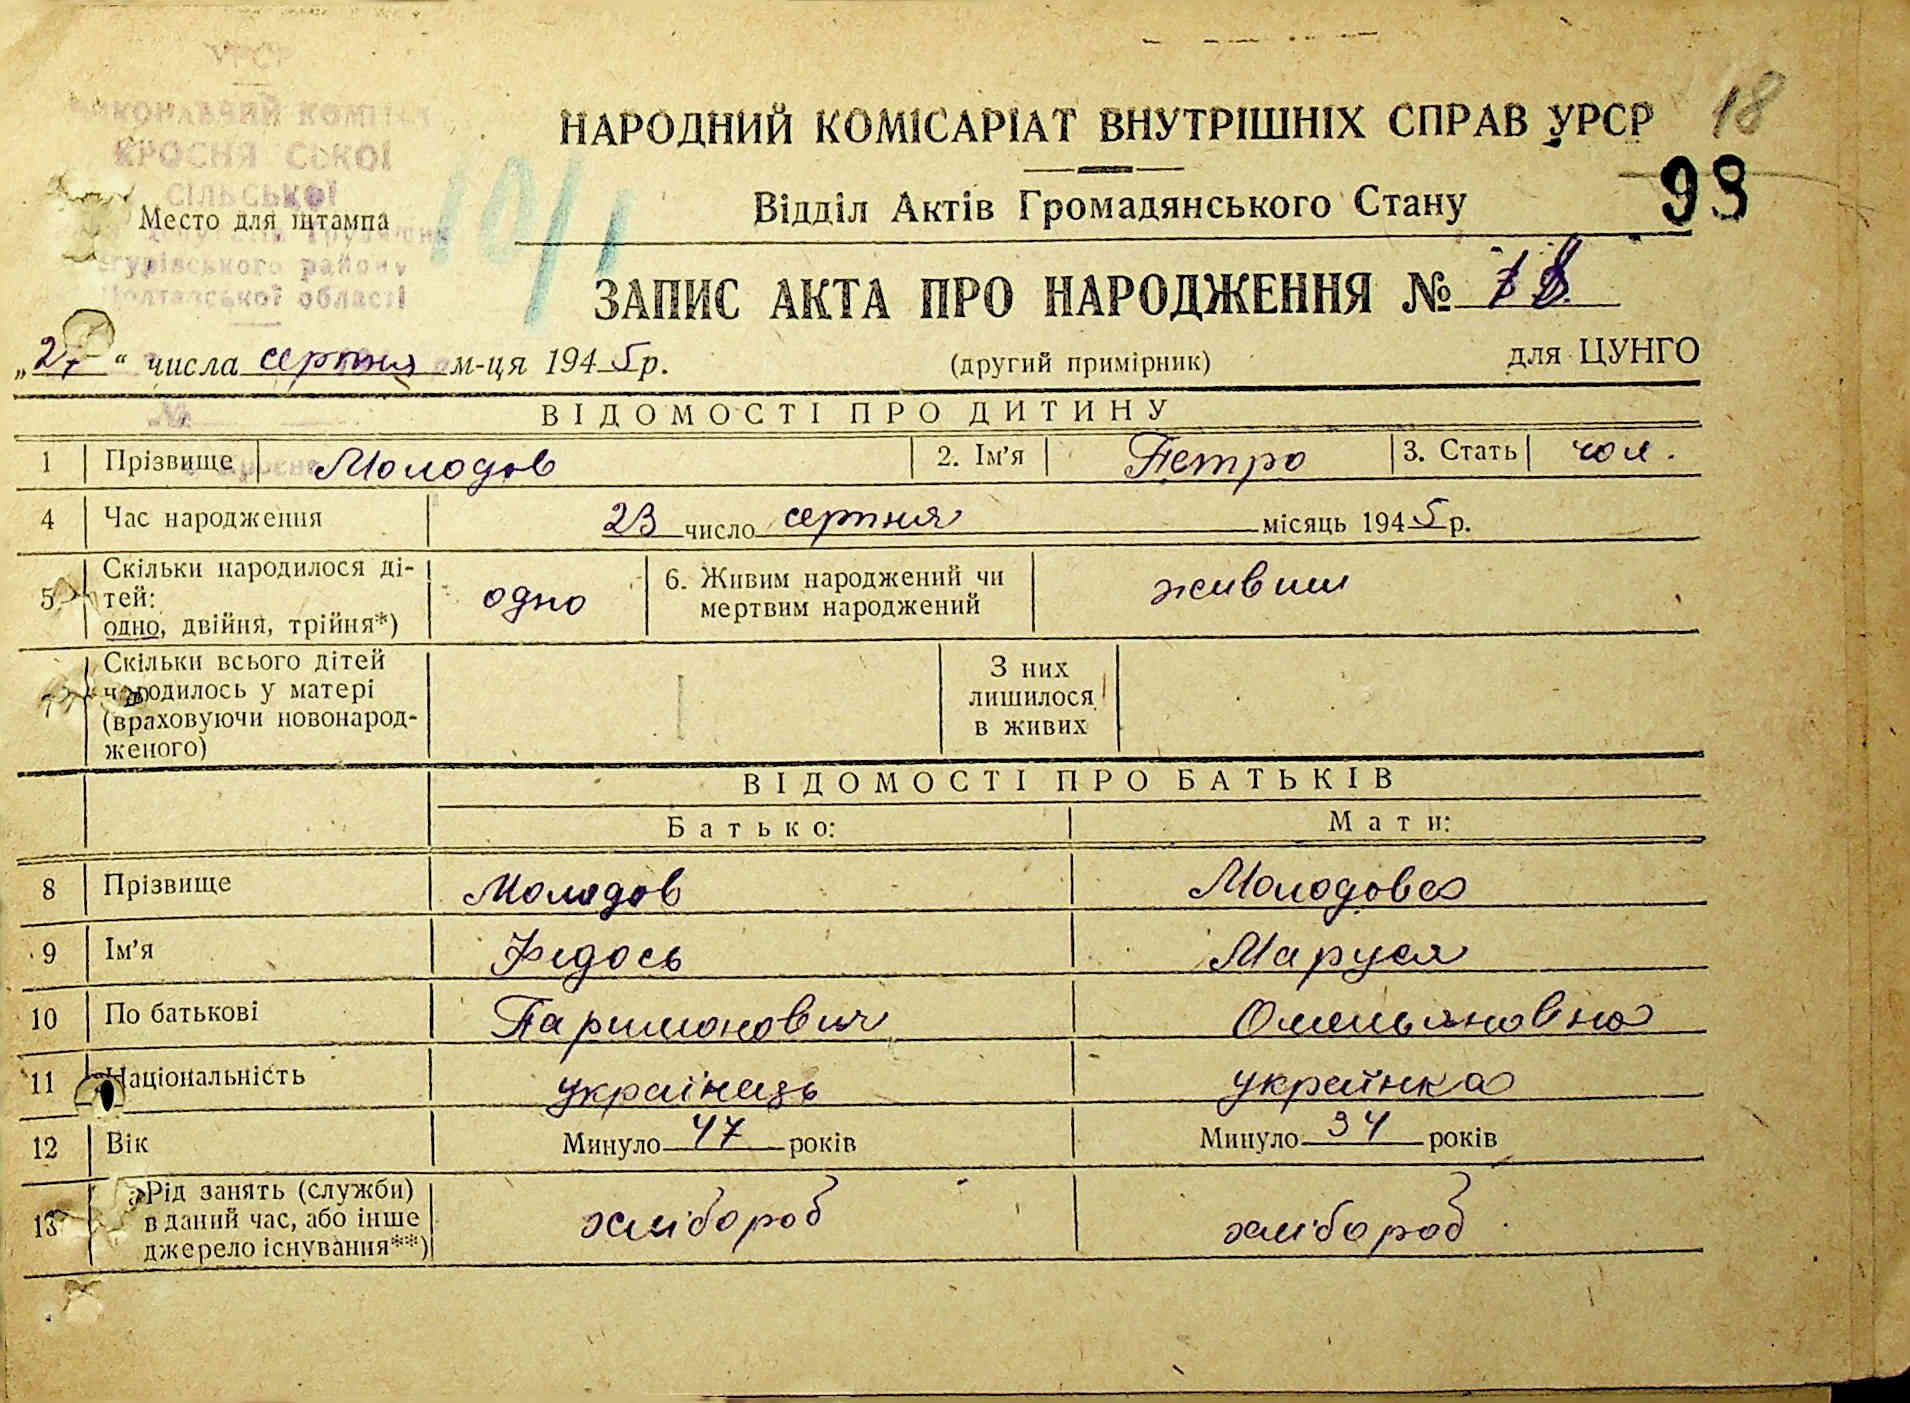 УРСР
ВИКОНАВЧИЙ КОМІТЕТ
СІЛЬСЬКОЇ
Место для штампа
району
Полтавської області
НАРОДНИЙ КОМІСАРІАТ ВНУТРІШНІХ СПРАВ УРСР 18
93
Відділ Актів Громадянського Стану
ЗАПИС АКТА ПРО НАРОДЖЕННЯ № 18
„27“ числа серпня м-ця 1945р. (другий примірник) для ЦУНГО
ВІДОМОСТІ ПРО ДИТИНУ
1 Прізвище Молодов 2. Ім'я Петро 3. Стать чол.
4 Час народження 23 число серпня місяць 1945р.
5 Скільки народилося ді-
тей:
одно, двійня, трійня*) одно 6. Живим народжений чи
мертвим народжений живим
Скільки всього дітей
народилось у матері
(враховуючи новонарод-
женого) З них
лишилося
в живих
ВІДОМОСТІ ПРО БАТЬКІВ
Батько: Мати:
8 Прізвище Молодов Молодова
9 Ім'я Федось Маруся
10 По батькові Паримонович Омельяновна
11 Національність українець українка
12 Вік Минуло 47 років Минуло 34 років
13 Рід занять (служби)
в даний час, або інше
джерело існування**) хлібороб хлібороб